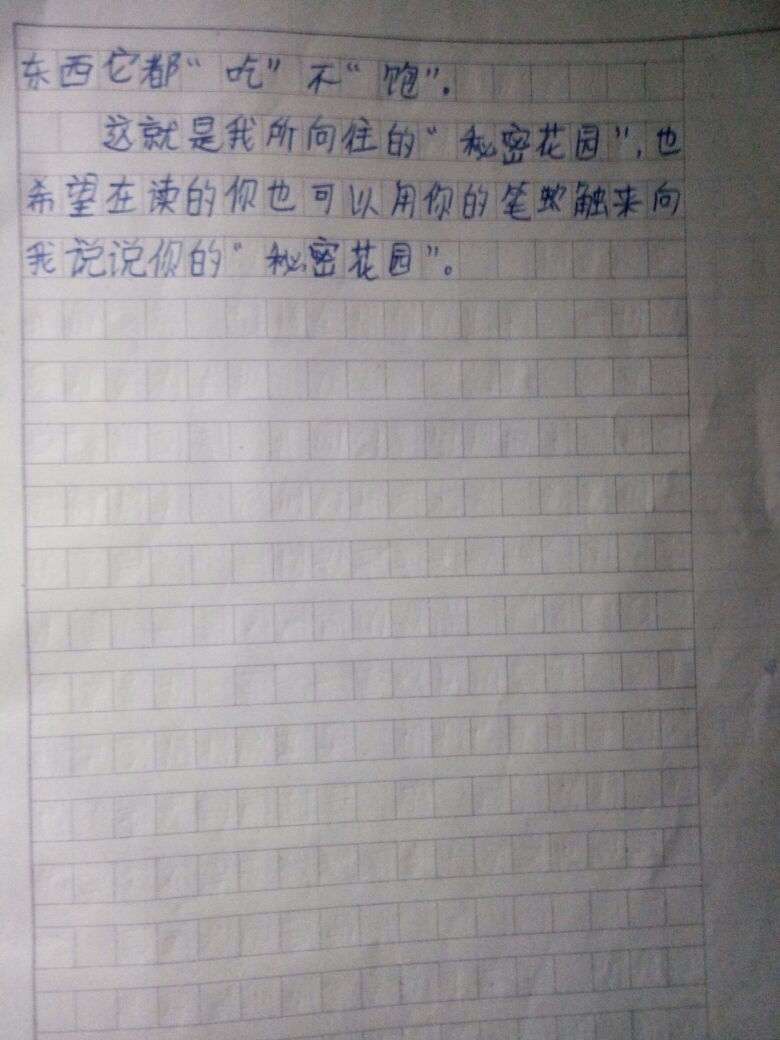 东西它都“吃”不“饱”.
这就是我所向往的“秘密花园”,也
希望在读的你也可以用你的笔触来向
我说说你的“秘密花园”。